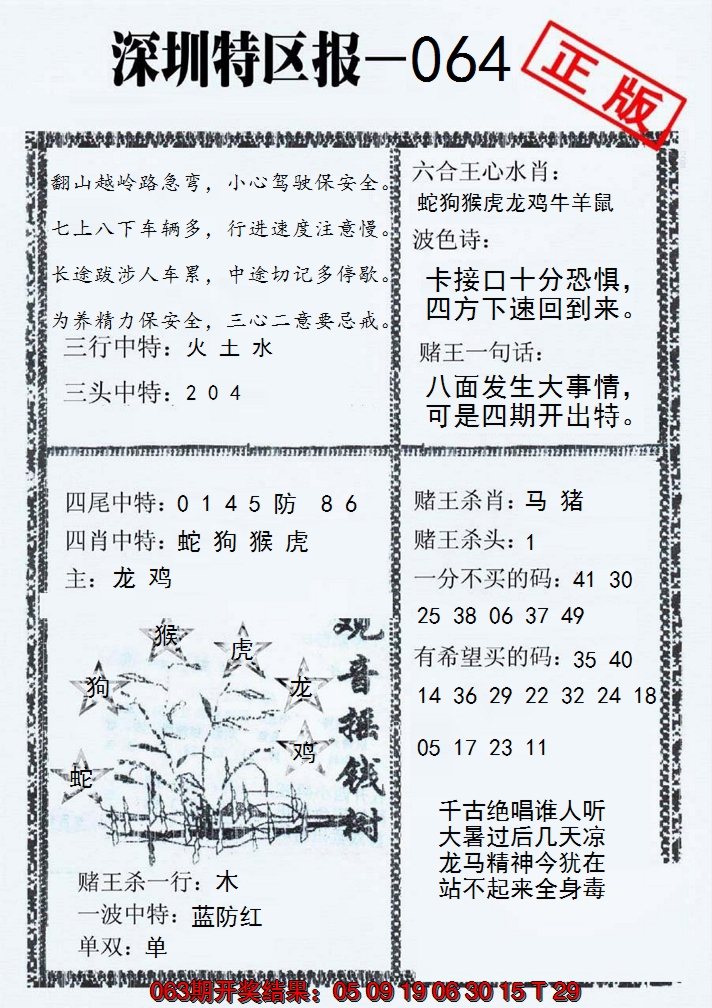 深圳特区报—064
正版
翻山越岭路急弯，小心驾驶保安全。
七上八下车辆多，行进速度注意慢。
长途跋涉人车累，中途切记多停歇。
为养精力保安全，三心二意要忌戒。
三行中特：火 土 水
三头中特：2 0 4
六合王心水肖：
蛇狗猴虎龙鸡牛羊鼠
波色诗：
卡接口十分恐惧，
四方下速回到来。
赌王一句话：
八面发生大事情，
可是四期开出特。
四尾中特：0 1 4 5 防 8 6
四肖中特：蛇 狗 猴 虎
主：龙 鸡
猴
虎
狗
龙
鸡
蛇
观音摇钱树
赌王杀一行：木
一波中特：蓝防红
单双：单
赌王杀肖：马 猪
赌王杀头：1
一分不买的码：41 30
25 38 06 37 49
有希望买的码：35 40
14 36 29 22 32 24 18
05 17 23 11
千古绝唱谁人听
大暑过后几天凉
龙马精神今犹在
站不起来全身毒
063期开奖结果：05 09 19 06 30 15 T 29